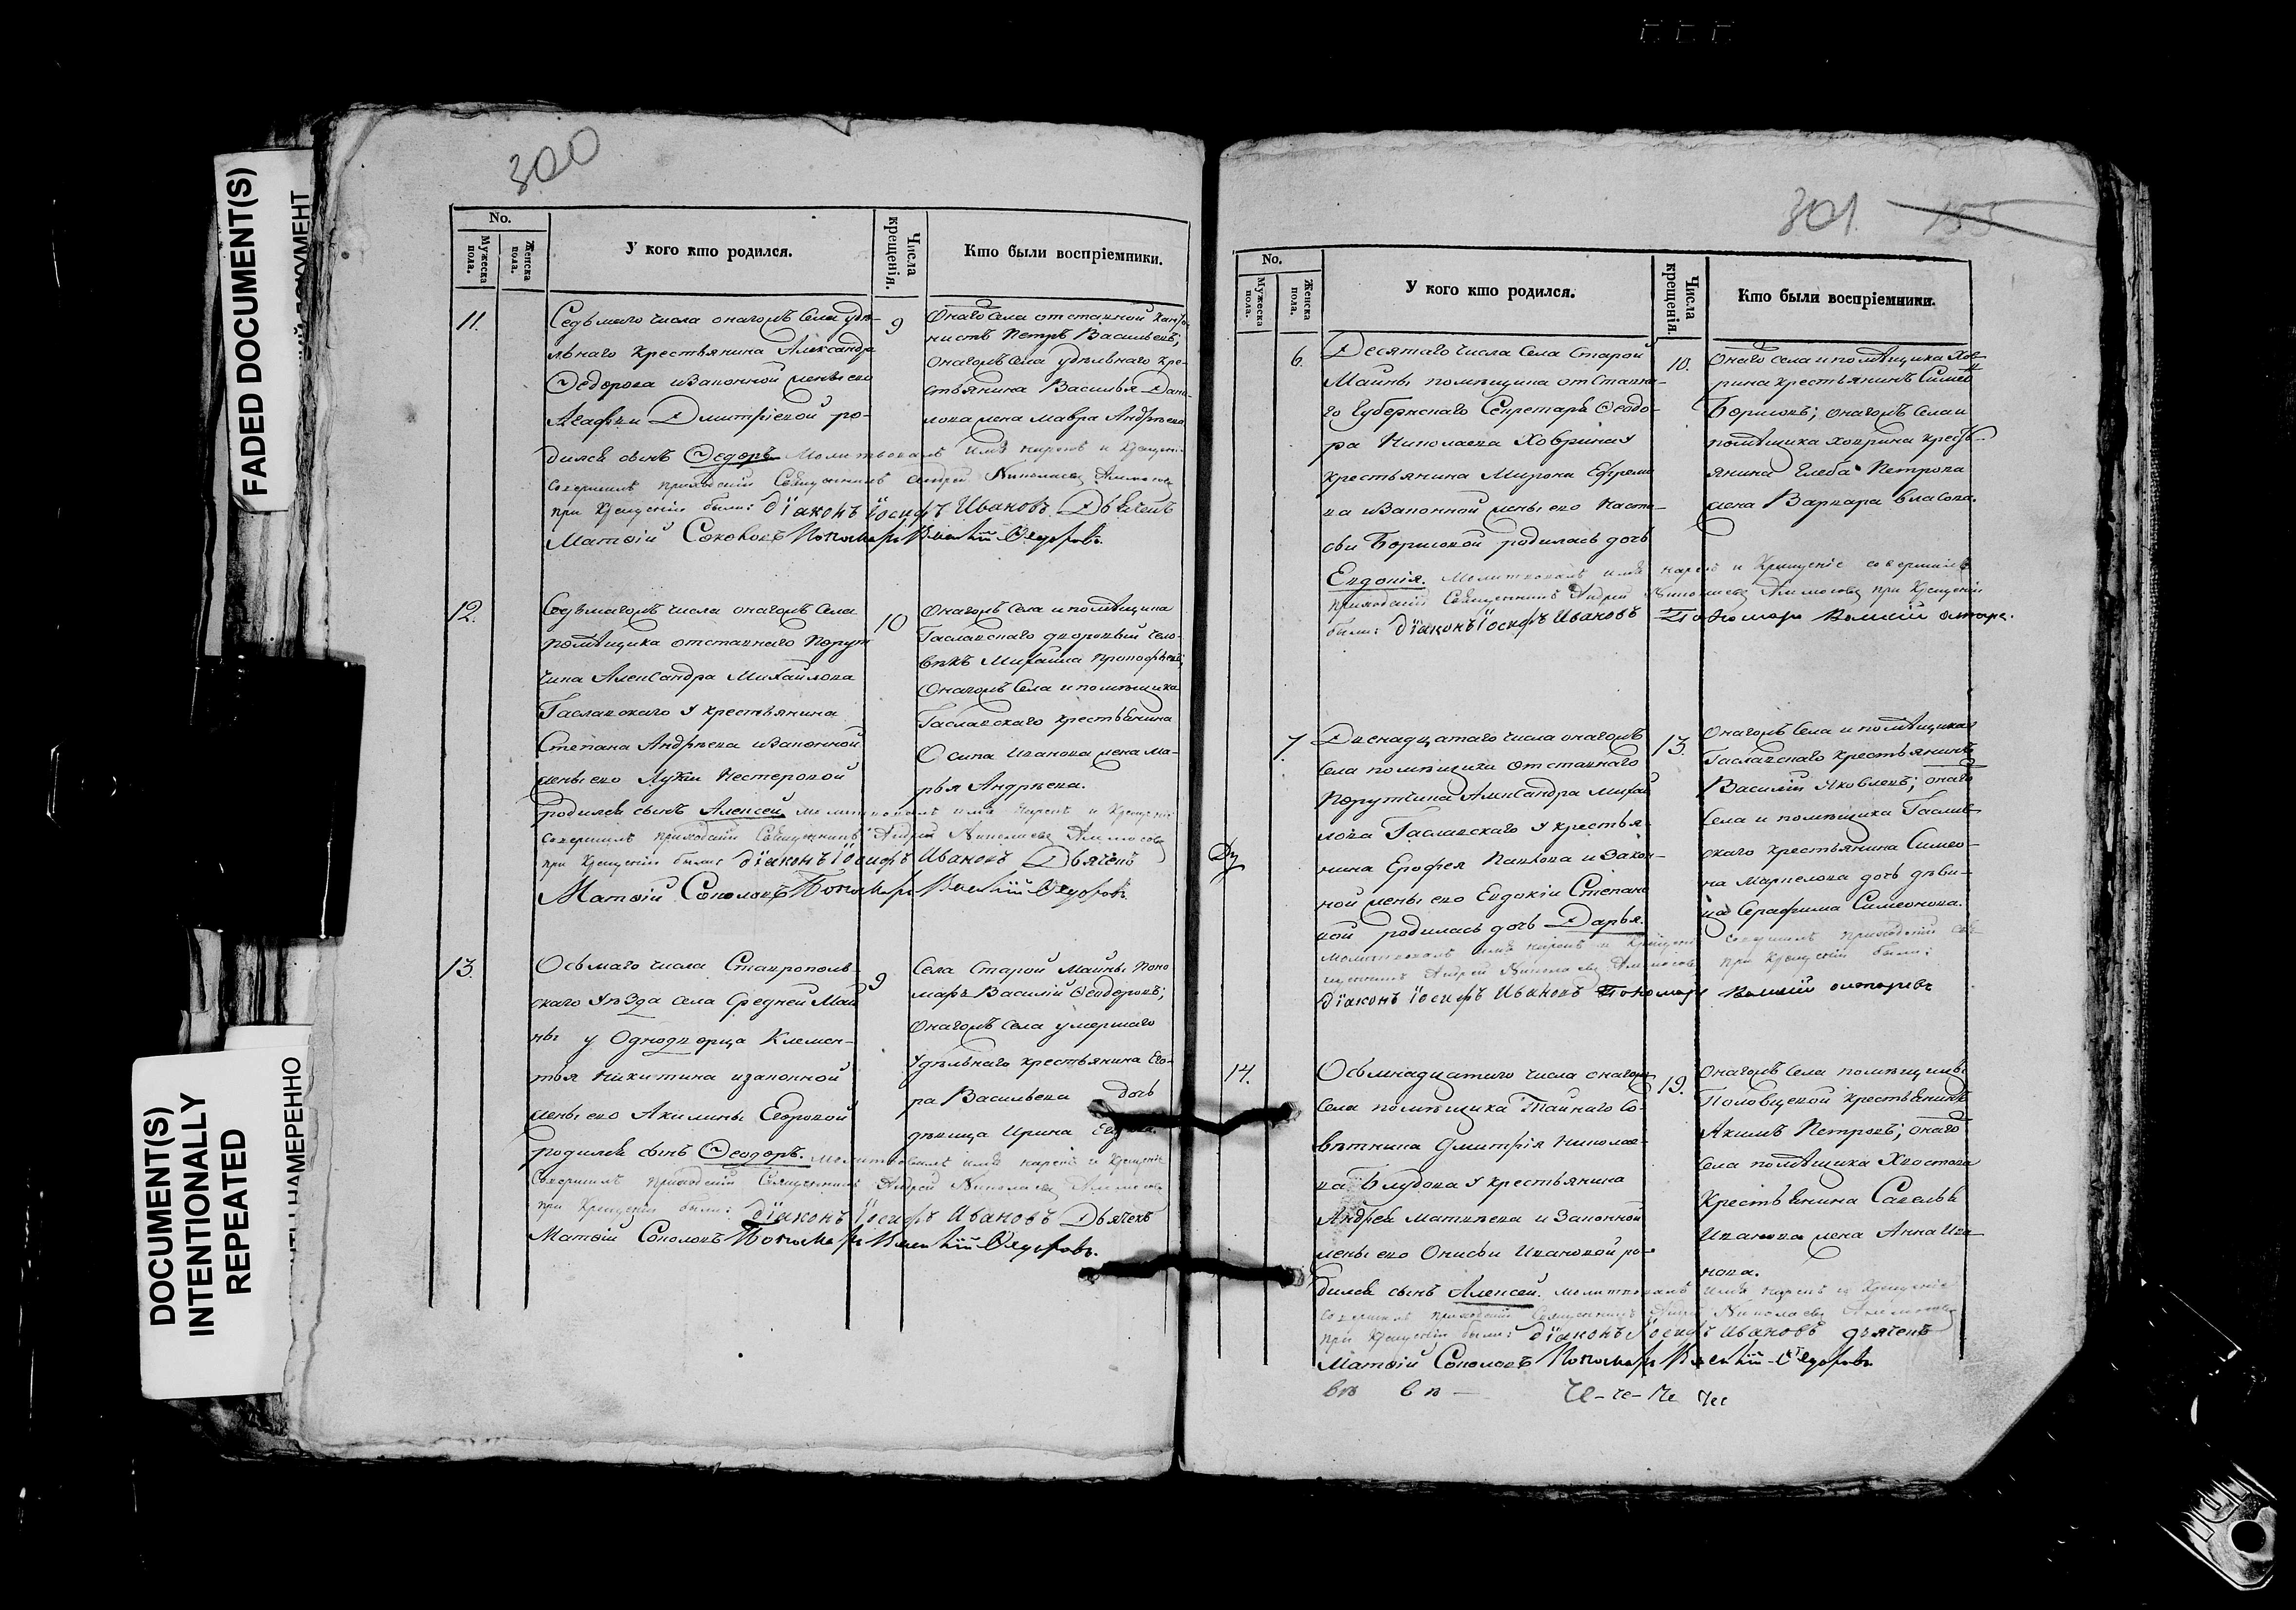 FADED DOCUMENT(S)
DOCUMENT(S)
INTENTIONALLY
REPEATED
НАМЕРЕННО
300
No.
Мужеска пола.
Женска пола.
У кого кто родился.
Числа крещенія.
Кто были воспріемники.
11.
Седьмаго числа онагожъ села удѣ-
льнаго крестьянина Александра
Ѳедорова и законной жены его
Агафьи Дмитріевой ро-
дился сынъ Ѳедоръ Молитвовалъ имя нарекъ и крещеніе
совершилъ приходскій Священникъ Андрей Николаевъ Аммосовъ
при крещеніи были: діаконъ Іосифъ Ивановъ Дьячекъ
Матѳій Соколовъ Пономарь Василій Ѳедоровъ.
9
Онаго села отставной
Петръ Васильевъ;
онагожъ села удѣльнаго кре-
стьянина Василья Дани-
лова жена Мавра Андрѣева
12.
Седьмагожъ числа онагожъ села
помѣщика отставнаго Порут-
чика Александра Михайлова
Таславскаго у крестьянина
Степана Андрѣева и законной
жены его Лукіи Нестеровой
родился сынъ Алексей, молитвовалъ имя нарекъ и крещеніе
совершилъ приходскій Священникъ Андрей Николаевъ Аммосовъ
при крещеніи были: діаконъ Іосифъ Ивановъ Дьячекъ
Матѳій Соколовъ Пономарь Василій Ѳедоровъ.
10
Онагожъ села и помѣщика
Таславскаго дворовый чело-
вѣкъ Михайла Прокофьевъ;
онагожъ села и помѣщика
Таславскаго крестьянина
Осипа Иванова жена Ма-
рья Андрѣева.
13.
Осьмаго числа Ставрополь-
скаго уѣзда села Средней Май-
ны у Однодворца Клемен-
тья Никитина и законной
жены его Акилины Егоровой
родился сынъ Ѳеодоръ. молитвовалъ имя нарекъ и крещеніе
Совершилъ приходскій Священникъ Андрей Николаевъ Аммосовъ
при крещеніи были: діаконъ Іосифъ Ивановъ Дьячекъ
Матѳій Соколовъ Пономарь Василій Ѳедоровъ.
9
Села Старой Майны поно-
марь Василій Ѳеодоровъ;
онагожъ села умершаго
удѣльнаго крестьянина Его-
ра Васильева дочь
дѣвица Ирина Егорова.
301.
155
No.
Мужеска пола.
Женска пола.
У кого кто родился.
Числа крещенія.
Кто были воспріемники.
6.
Десятаго числа села Старой
Майны помѣщика отставна-
го Губернскаго Секретаря Ѳеодо-
ра Николаева Ховрина у
крестьянина Мирона Ефремо-
ва и законной жены его Наста-
сьи Борисовой родилась дочь
Евдокія. Молитвовалъ имя нарекъ и Крещеніе совершилъ
приходскій Священникъ Андрей Николаевъ Аммосовъ при Крещеніи
были: діаконъ Іосифъ Ивановъ Пономарь Василій
10.
Онаго села и помѣщика Хов-
рина крестьянинъ Симео
Борисовъ; онагожъ села и
помѣщика Ховрина кресть-
янина Глеба Петрова
жена Варвара Власова.
7.
Двенадцатаго числа онагожъ
села помѣщика отставнаго
Порутчика Александра Михай-
лова Таславскаго у крестья-
нина Ерофея Павлова и закон-
ной жены его Евдокіи Степано-
вой родилась дочь Дарья.
молитвовалъ имя нарекъ и Крещеніе совершилъ приходскій свя-
щенникъ Андрей Николаевъ Аммосовъ при крещеніи были:
діаконъ Іосифъ Ивановъ Пономарь Василій
13.
Онагожъ села и помѣщика
Таславскаго крестьянинъ
Василій Яковлевъ; онаго
села и помѣщика Таслав-
скаго крестьянина Симео-
на Маркелова дочь дѣви-
ца Серафима Симеонова.
14.
Осьмнадцатаго числа онагожъ
села помѣщика Тайнаго Со-
вѣтника Дмитрія Николае-
ва Блудова у крестьянина
Андрея Матвѣева и законной
жены его Онисьи Ивановой ро-
дился сынъ Алексей. молитвовалъ имя нарекъ и Крещеніе
совершилъ приходскій Священникъ Андрей Николаевъ Аммосовъ
при крещеніи были: діаконъ Іосифъ Ивановъ дьячекъ
Матѳій Соколовъ Пономарь Василій Ѳедоровъ
19.
Онагожъ села помѣщицы
Половцевой крестьянинъ
Акимъ Петровъ; онаго
села помѣщика Хвостова
крестьянина Савелья
Иванова жена Анна Ива-
нова.